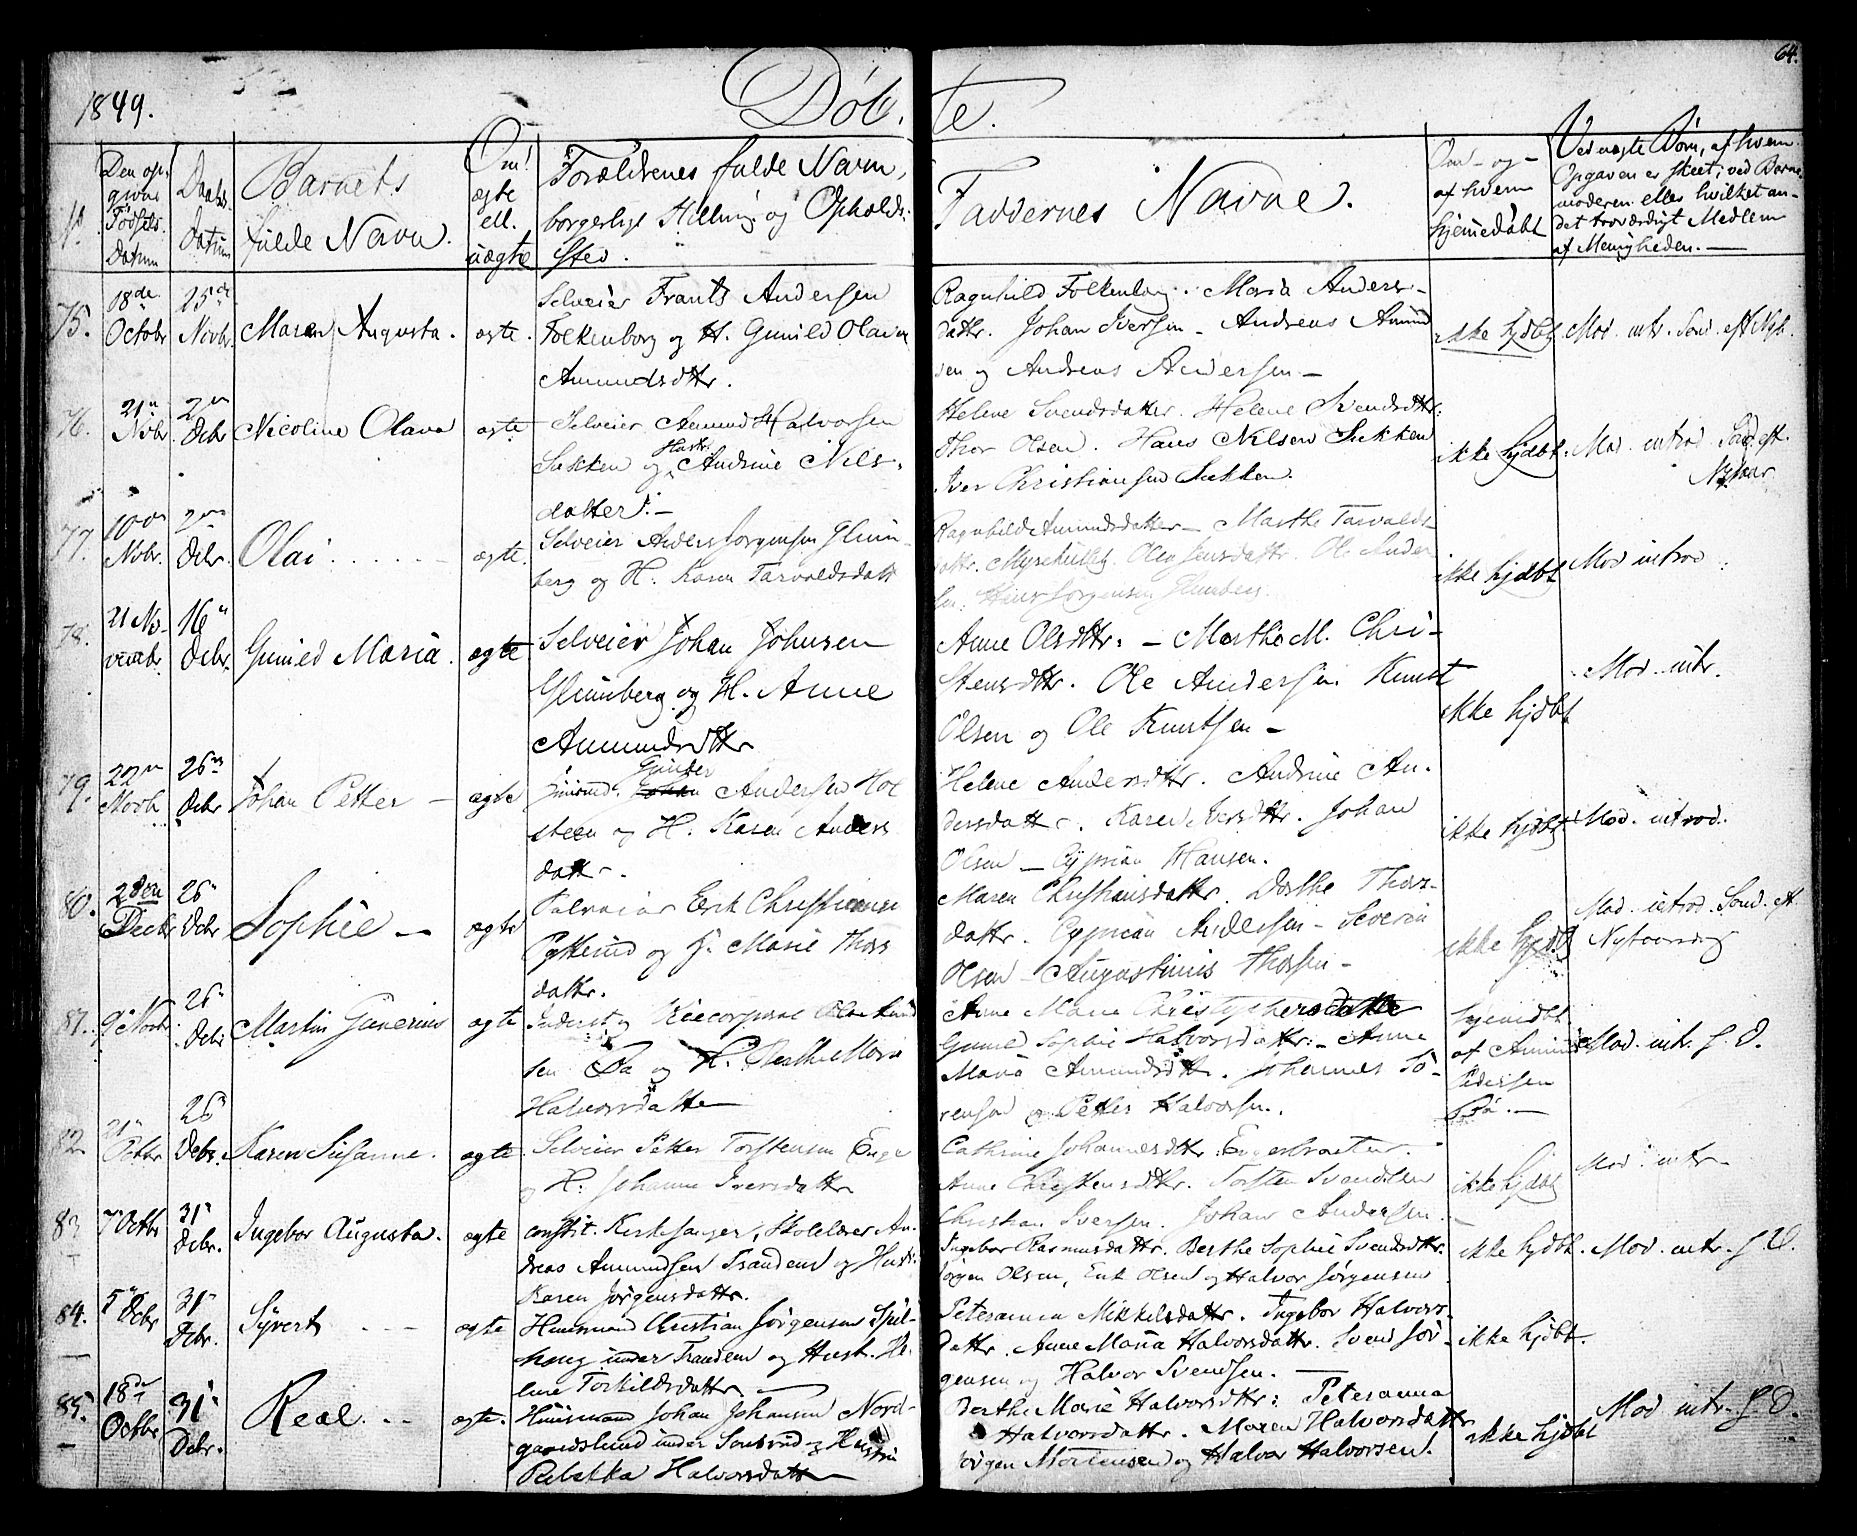 64.
1849.
Döb, te.
No
Den op-
givne
Födsels
Datum
Daabs
Datum
Barnets
fulde Navn.
Om
ægte
ell.
uægte
Forældrenes fulde Navn,
borgerlige Stilling og Opholds-
sted.
Faddernes Navne.
Om- og-
af hvem
hjemmedöbt
Ved uægte Börn, af hvem
Opgaven er skeet; ved Barne-
moderen eller hvilket an-
det troværdigt Medlem
af Menigheden. —
75.
18de
Octobr
25de
Novbr.
Maren Augusta.
ægte.
Selveier Frants Andersen
Folkenborg og H. Gunild Olava
Amundsdttr.
Ragnhild Folkenborg. Maria Anders-
dattr. Johan Iversen - Andreas Amund
sen og Andreas Andersen —
ikke hjdbt
Mod. intr. Sönd. eft Nyt.
76.
21n
Nvbr
2n
Dcbr
Nicoline Olava
ægte
Selveier Amund Halvorsen
Sukken og Hustr. Andrine Nils-
datter. —
Helene Svendsdatter. Helene Svendsdttr.
Thor Olsen. Hans Nilsen Sukken
Iver Christiansen Sukken.
ikke hjdbt.
Mod. introd. Sönd. eft.
Nytaar
77.
10de
Nvbr.
2den
Dcbr.
Olai . . . . .
ægte.
Selveier Anders Jörgensen Glum-
berg og H. Karen Tarvaldsdatt
Ragnhild Amundsdatter — Marthe Tarvalds-
dattr. Ole Ander
sen. Hans Jörgensen Glumberg.
ikke hjdbt
Mod introd.
78.
21 No-
vembr
16n
Dcbr.
Gunild Maria.
ægte
Selveier Johan Johnsen
Glumberg og H. Anne
Amundsdttr
Anne Olsdttr. — Marthe M. Chri-
stensdttr. Ole Andersen Knut
Olsen og Ole Knutsen —
ikke hjdbt
Mod. intr.
79.
22n
Novb.
26n
Dcbr
Johan Petter —
ægte
Huusmd. Gunder Andersen Hol
steen og H. Karen Anders
dattr.
Helene Andersdttr. Andrine An-
dersdattr. Karen Iversdttr. Johan
Olsen — Cyprian Hansen.
ikke hjdbt
Mod. introd.
80.
2den
Decbr
26n
Dcbr
Sophie —
ægte
Selveier Erik Christiansen
og H. Marie Thors
dattr.
Maren Christiansdattr. Dorthe Thors-
dattr. Cyprian Andersen — Severin
Olsen — Augustinus Thorsen —
ikke hjdbt
Mod. introd. Sönd. eft
Nytaarsdag
81.
9de Novbr
26n
Dcbr
Martin Gunerius
ægte
Inderst og Vicecorporal Ole Amund
sen Bö og H. Berthe Maria
Halvorsdatter
Anne Marie Christophersdatter
Gunild Sophie Halvorsdattr. — Anne
Maria Amundsdttr. Johannes Sö-
rensen og Petter Halvorsen.
hjemmedbt
af Amund
Pedersen
Bö. —
Mod. intr. S. D.
82
21n
Octbr
26n
Dcbr.
Karen Susanne.
ægte.
Selveier Petter Torstensen Enge
og H. Johanne Iversdattr
Cathrine Johannesdttr. Engerbraaten.
Anne Christensdttr. Torsten Svendsen
Christian Iversen. Johan Andersen.
ikke hjdbt
Mod. intr.
83
7 Octbr
31n
Dcbr.
Ingebor Augusta.
ægte
constit. Kirkesanger, Skolelærer An-
dreas Amundsen Trandem og Hustr.
Karen Jörgensdattr.
Ingebor Rasmusdattr. Berthe Sophie Svendsdttr.
Jörgen Olsen, Erik Olsen og Halvor Jörgensen
ikke hjdbt.
Mod. intr. S. D.
84.
5n Dcbr
31n
Dcbr.
Syvert . — —
ægte
Huusmand Christian Jörgensen Spil-
houg under Trandem og Hust. He-
lene Torkildsdattr. —
Petersanna Mikkelsdattr. Ingebor Halvors-
dattr. Anne Maria Halvorsdattr. Svend Jör-
gensen og Halvor Svendsen. —
ikke hjdbt.
85.
18de
Octbr
31n
Dcbr.
Real. . —
ægte.
Huusmand Johan Johansen Nord-
gaardslund under Sandnd og Hustru
Rebekka Halvorsdatter
Berthe Marie Halvorsdttr. Petersanna
Halvorsdattr. Maren Halvorsdattr
Jörgen Mortensen og Halvor Halvorsen.
ikke hjdbt
Mod intr. S. D.